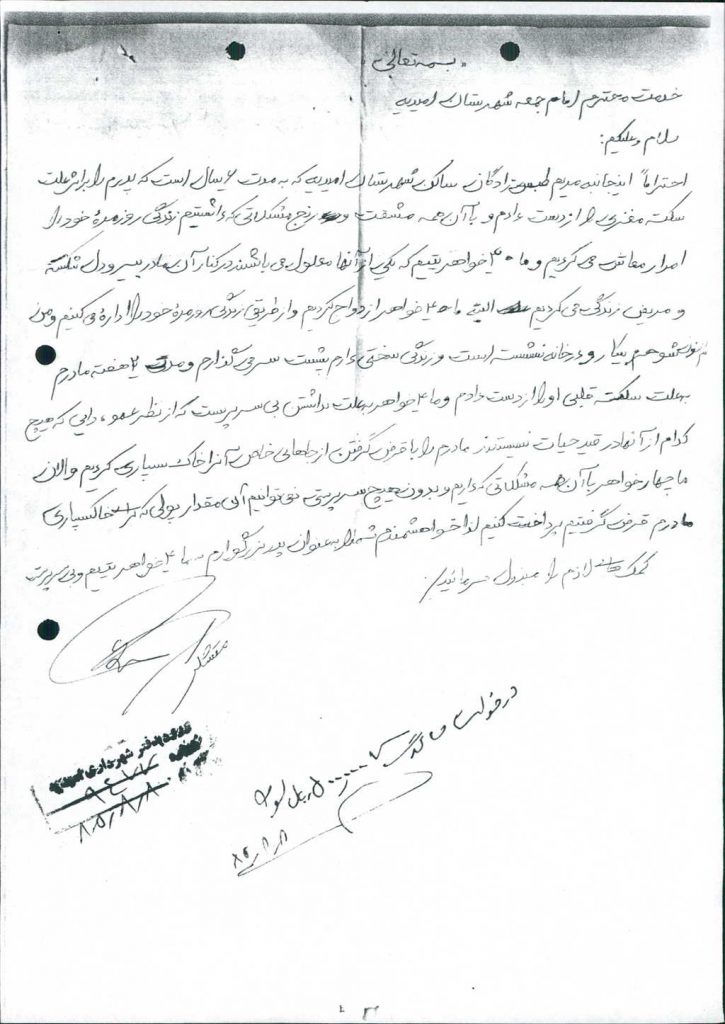 بسمه تعالی
خدمت محترم امام جمعه شهرستان امیدیه
سلام وعلیکم:
احتراماً اینجانبه مریم زادگان ساکن شهرستان امیدیه که به مدت ۶ سال است که پدرم را براثر علت
سکته مغزی را از دست دادم و با آن همه مشقت و رنج مشکلاتی که داشتیم زندگی روزمره خود را
امرار معاش می کردیم و ما ۴ خواهر یتیم که یکی از آنها معلول می باشند در کنار آن مادر پیر و دل شکسته
و مریض زندگی می کردیم البته ما ۴ خواهر ازدواج کردیم و از طریق زندگی روزمره خود را اداره می کنیم و من
هم شوهرم بیکار و در خانه نشسته است و زندگی سختی دارم پشت سر می گذارم و مدت ۲ هفته مادرم
بعلت سکته قلبی او را از دست دادم و ما ۴ خواهر بعلت نداشتن بی سرپرست که از نظر عمو، دایی که هیچ
کدام از آنها در قید حیات نیستند مادرم را با قرض گرفتن از جاهایی خاص آنرا خاک سپاری کردیم والان
ما چهار خواهر با آن همه مشکلاتی که داریم و بدون هیچ سرپرستی نمی توانیم آن مقدار پولی که برای خاکسپاری
مادرم قرض گرفتیم پرداخت کنیم لذا خواهشمندم شما را به عنوان پدر بزرگوارم به ما ۴ خواهر یتیم وبی سرپرست
کمک های لازم را مبذول فرمائید.
متشکرم
درخواست کمک
ریال
۸۵/۸/۸
دفتر شهرداری امیدیه
۹۶۷۷
۸۵/۸/۸